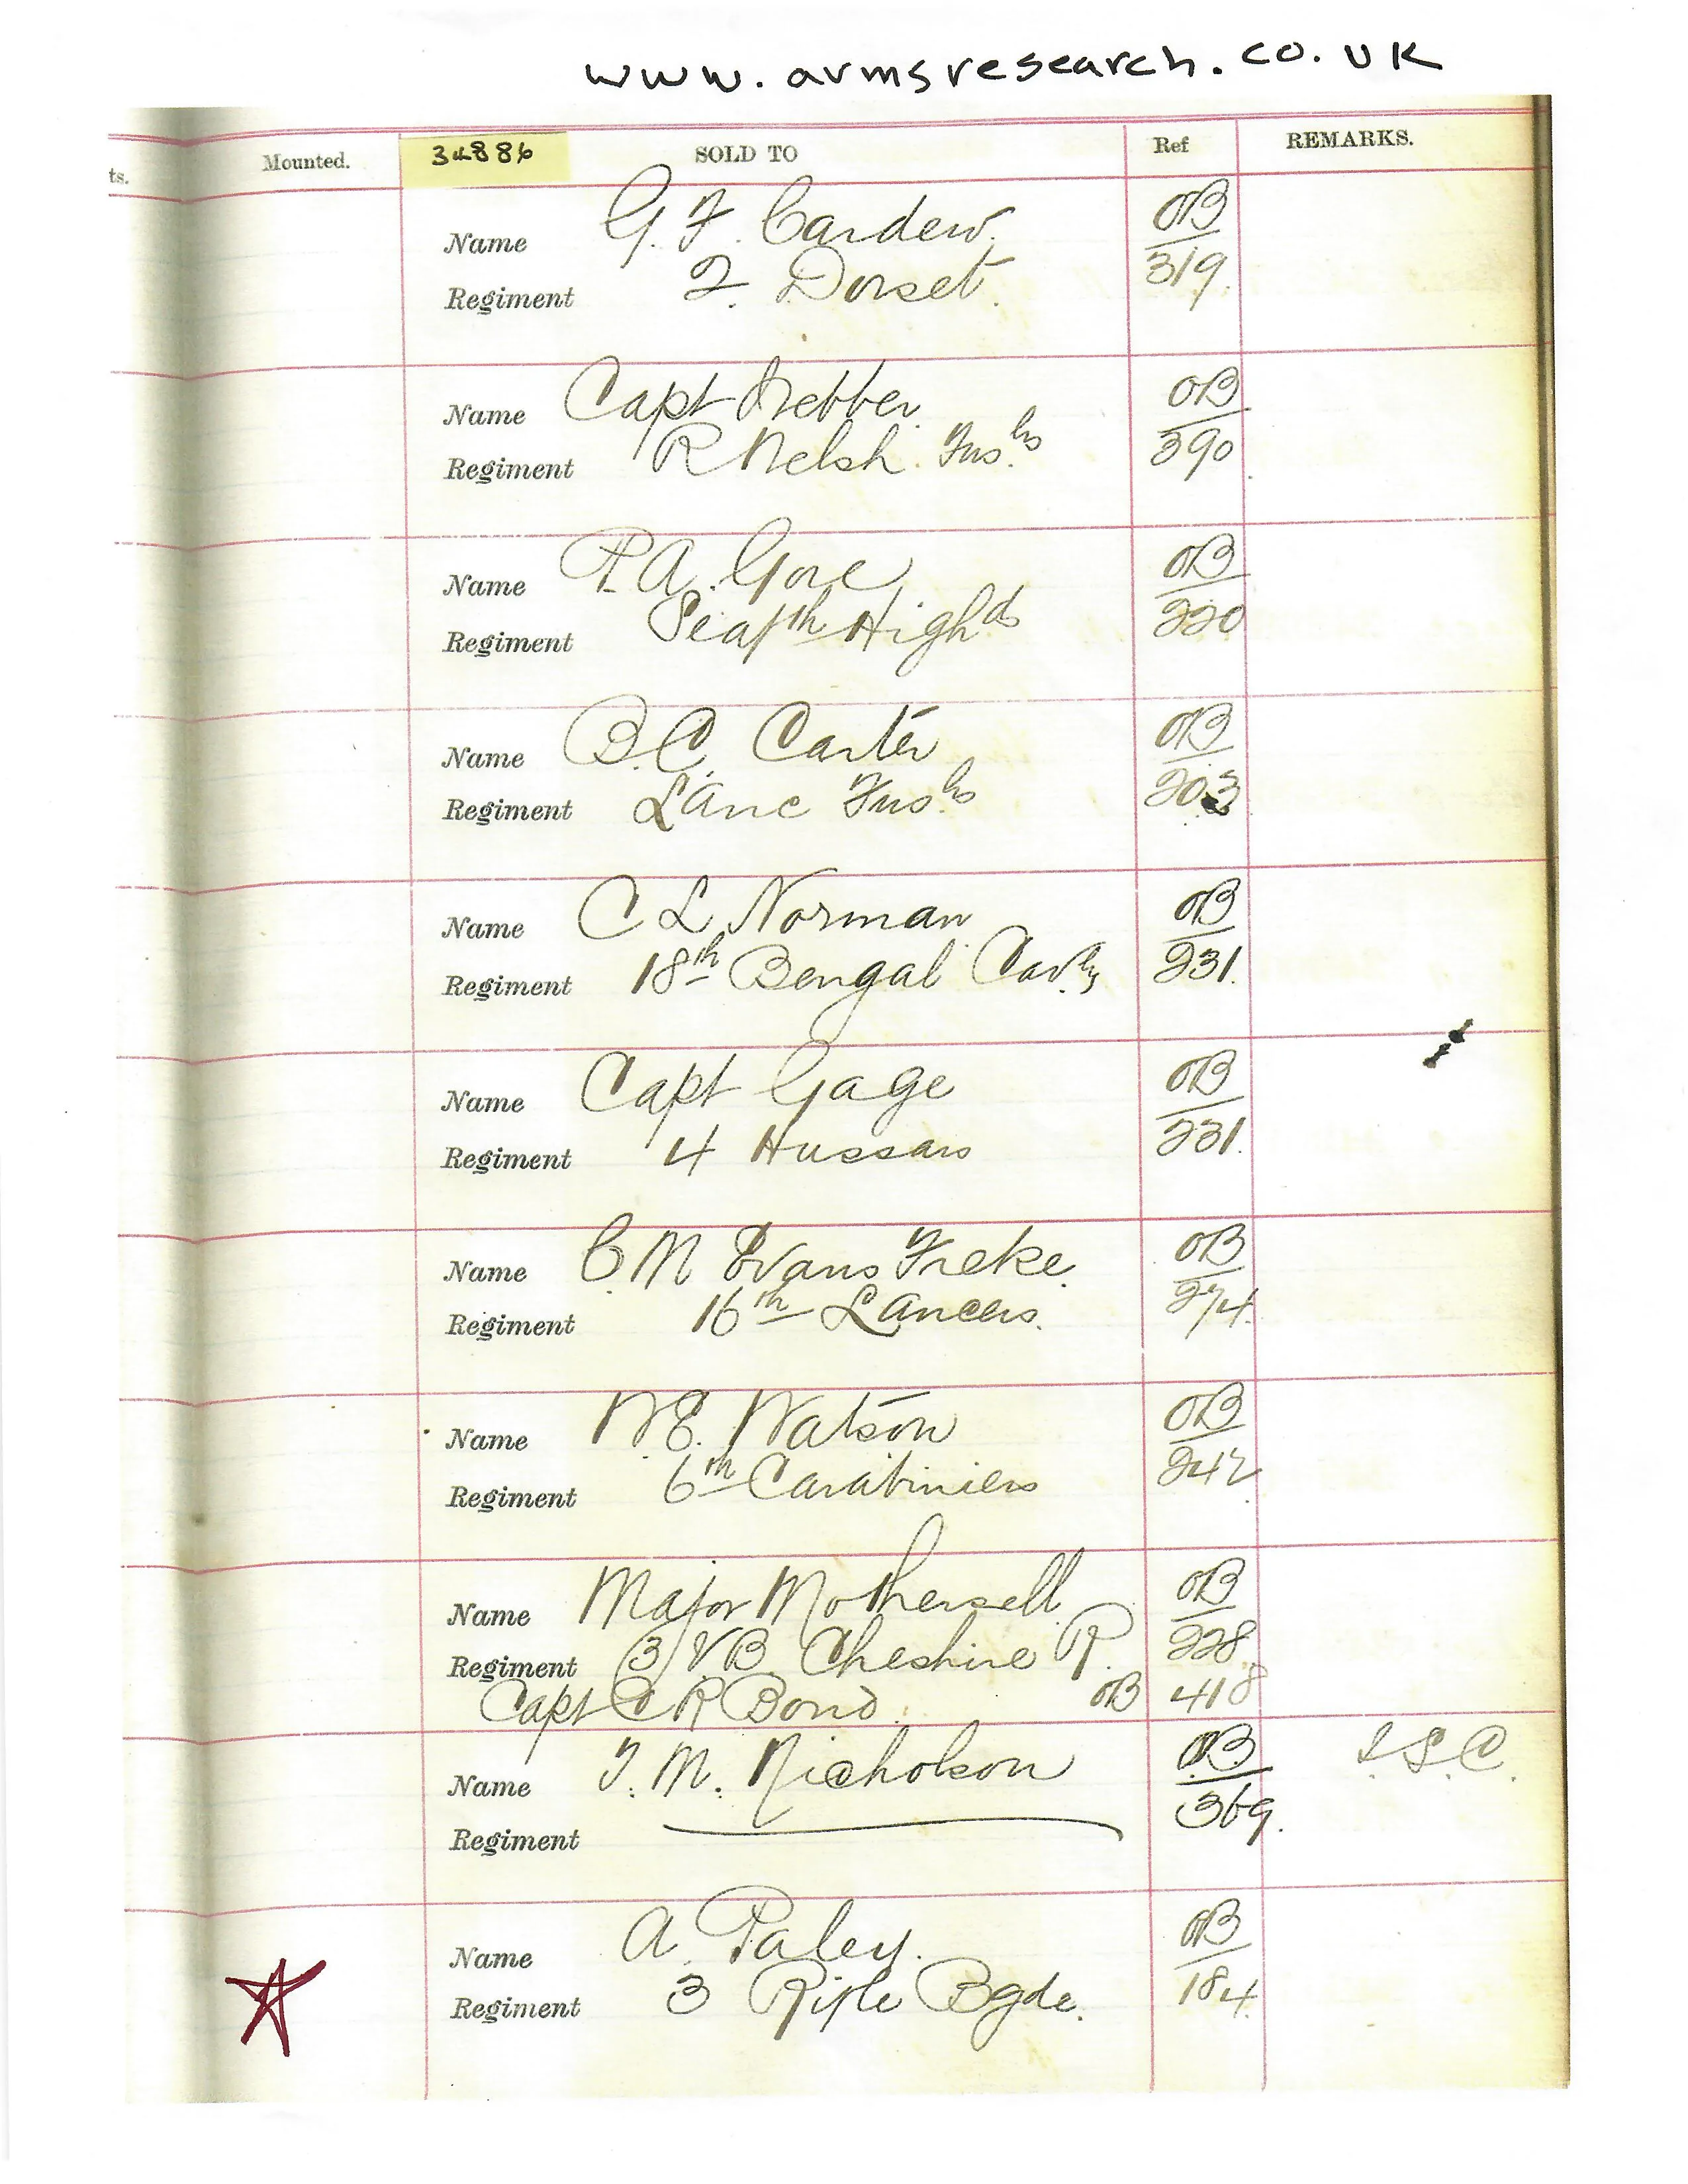 www.armsresearch.co.uk
ts. Mounted. 34886 SOLD TO Ref REMARKS.
Name G. F. Cardew. OB
Regiment 2. Dorset. 319.
Name Capt Webber OB
Regiment R Welsh Fus.rs 390
Name A. Gore OB
Regiment Seafth Highds 220
Name B.C. Carter OB
Regiment Lanc Fusrs 203
Name C L Norman OB
Regiment 18th Bengal Cavly 231.
Name Capt Gage OB
Regiment 4 Hussars 231.
Name C M Evans Freke OB
Regiment 16th Lancers. 274.
Name W E. Watson OB
Regiment 6th Carabiniers 242
Name Major Mothersell OB
Regiment (3) VB Cheshire R. 228
Capt C R Bond. OB 418
Name T. M. Nicholson OB I.S.C.
Regiment 369.
Name A. Paley. OB
Regiment 3 Rifle Bgde. 184